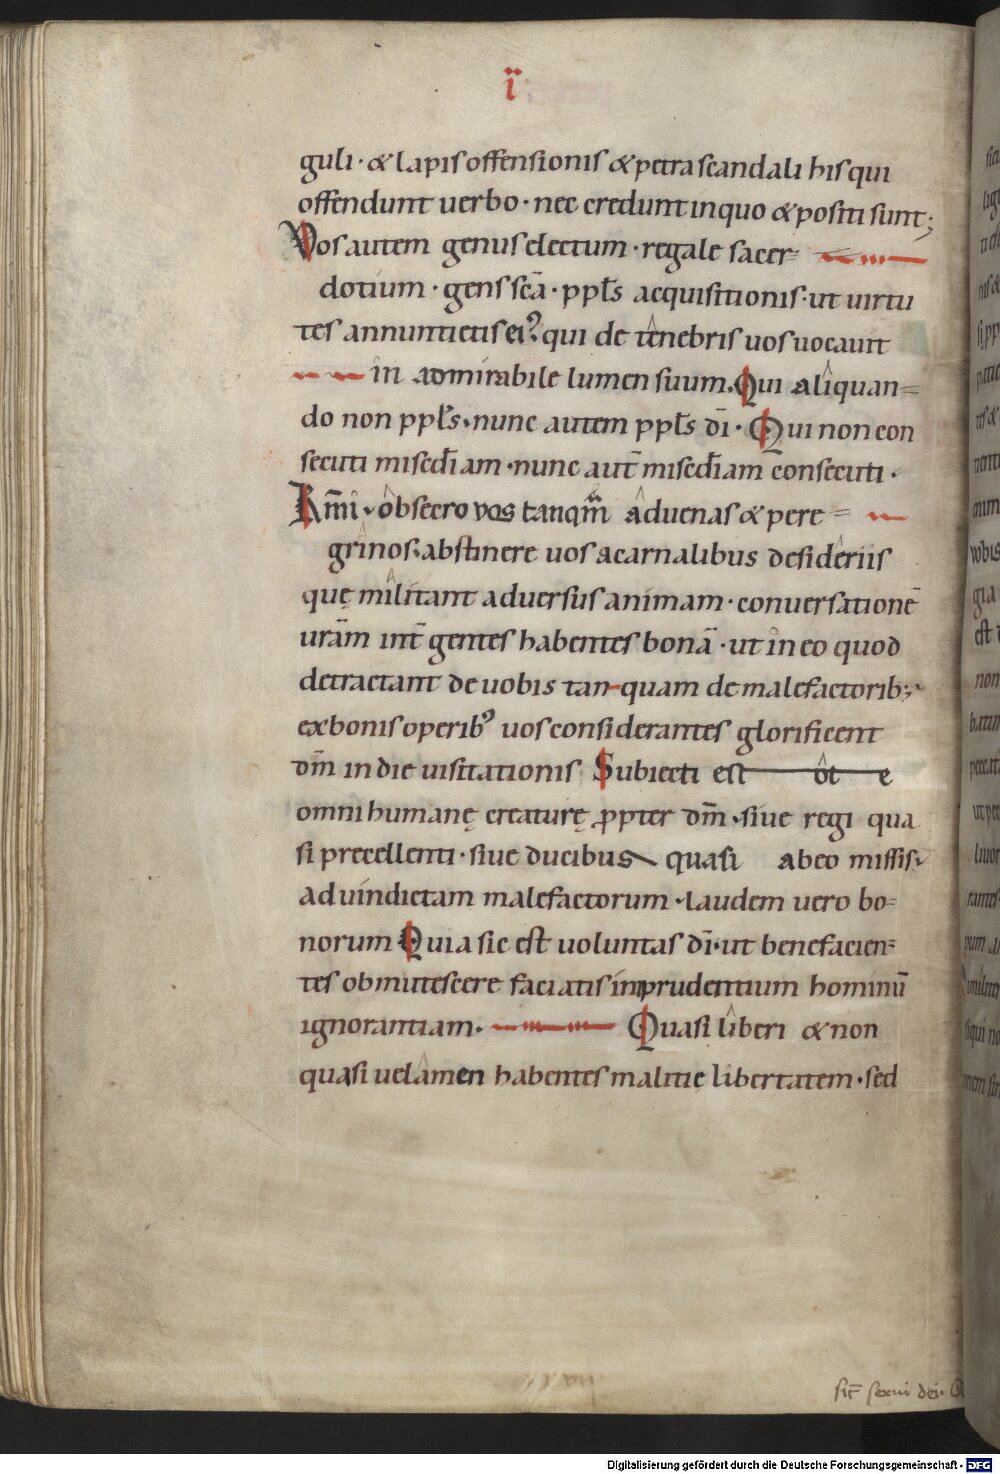 ï
guli · & lapis offensionis & petra scandali his qui
offendunt uerbo · nec credunt in quo & positi sunt;
Vos autem genus electum · regale sacer=
dotium · gens scā · ppl̄s acquisitionis · ut uirtu
tes annuntietis ei᾽ qui de tenebris uos uocauit
in admirabile lumen suum. Qui aliquan=
do non ppl̄s · nunc autem ppl̄s dī · Qui non con
secuti misc̄diam · nunc aut̄ misc̄diam consecuti ·
Km̄i · obsecro uos tanqm̄ aduenas & pere=
grinos · abstinere uos a carnalibus desideriis
quę militant aduersus animam · conuersationē
urām int̄ gentes habentes bonā · ut in eo quod
detractant de uobis tan-quam de malefactorib;
ex bonis operib᾽ uos considerantes glorificent
dm̄ in die uisitationis Subiecti est ot e
omni humanę creaturę ꝓpter dm̄ · siue regi qua
si precellenti · siue ducibus quasi ab eo missis
ad uindictam malefactorum · laudem uero bo=
norum Quia sic est uoluntas dī · ut benefacien=
tes obmutescere faciatis inprudentium hominū
ignorantiam · Quasi liberi & non
quasi uelamen habentes malitię libertatem · sed
sic̄ serui dei ·
Digitalisierung gefördert durch die Deutsche Forschungsgemeinschaft - DFG